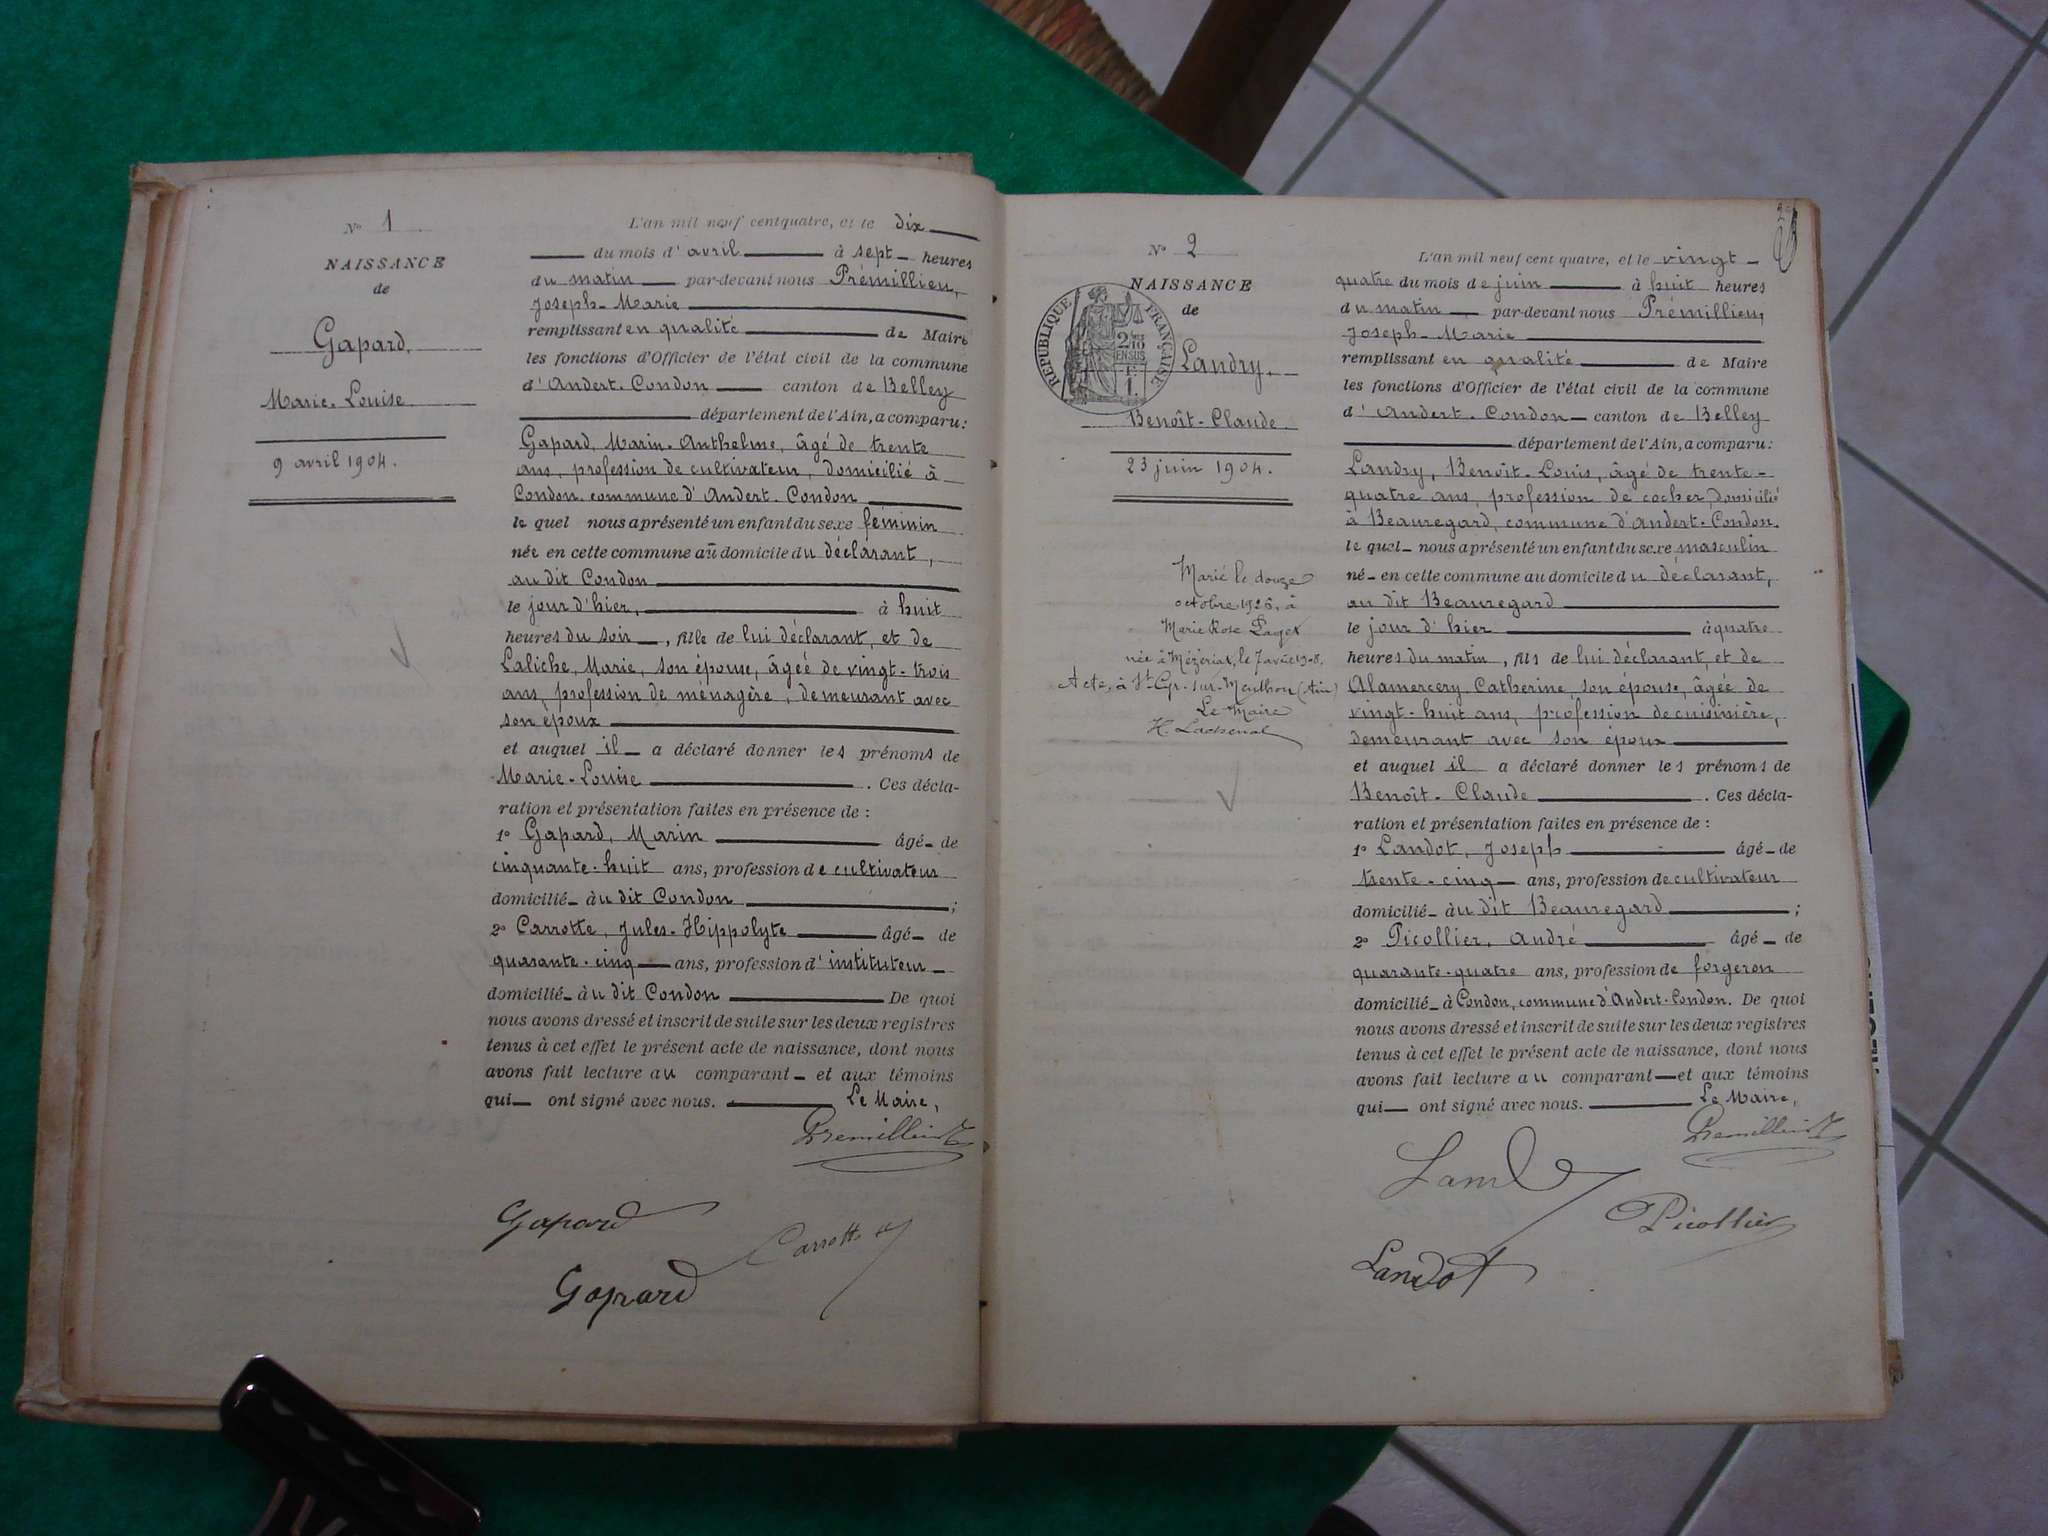 N° 1
NAISSANCE
de
Gapard,
Marie-Louise
9 avril 1904.
L'an mil neuf cent quatre, et le dix
du mois d'avril à sept heures
du matin par-devant nous Prémillieu,
Joseph-Marie
remplissant en qualité de Maire
les fonctions d'Officier de l'état civil de la commune
d'Andert-Condon canton de Belley
département de l'Ain, a comparu:
Gapard, Marin-Anthelme, âgé de trente
ans, profession de cultivateur, domicilié à
Condon, commune d'Andert-Condon
lequel nous a présenté un enfant du sexe féminin
née en cette commune au domicile du déclarant,
au dit Condon
le jour d'hier, à huit
heures du soir, fille de lui déclarant, et de
Laliche, Marie, son épouse, âgée de vingt-trois
ans, profession de ménagère, demeurant avec
son époux
et auquel il a déclaré donner les prénoms de
Marie-Louise. Ces décla-
ration et présentation faites en présence de :
1° Gapard, Marin âgé de
cinquante-huit ans, profession de cultivateur
domicilié au dit Condon ;
2° Carrotte, Jules-Hippolyte âgé de
quarante-cinq ans, profession d'instituteur
domicilié au dit Condon De quoi
nous avons dressé et inscrit de suite sur les deux registres
tenus à cet effet le présent acte de naissance, dont nous
avons fait lecture au comparant et aux témoins
qui ont signé avec nous. Le Maire,
Premillieu
Gapard
Carrotte
Gapard
N° 2
NAISSANCE
de
RÉPUBLIQUE FRANÇAISE
2/10
EN SUS
Landry,
Benoît-Claude
23 juin 1904.
Marié le douze
octobre 1926, à
Marie Rose
née à Mézériat, le 7
Acte, à St Cyr-sur-Menthon (Ain)
Le Maire
H. Lachenal
L'an mil neuf cent quatre, et le vingt-
quatre du mois de juin à huit heures
du matin par-devant nous Prémillieu,
Joseph-Marie
remplissant en qualité de Maire
les fonctions d'Officier de l'état civil de la commune
d'Andert-Condon canton de Belley
département de l'Ain, a comparu:
Landry, Benoît-Louis, âgé de trente-
quatre ans, profession de cocher, domicilié
à Beauregard, commune d'Andert-Condon
lequel nous a présenté un enfant du sexe masculin
né en cette commune au domicile du déclarant,
au dit Beauregard
le jour d'hier à quatre
heures du matin, fils de lui déclarant, et de
Alamercery, Catherine, son épouse, âgée de
vingt-huit ans, profession de cuisinière,
demeurant avec son époux
et auquel il a déclaré donner les prénoms de
Benoît-Claude. Ces décla-
ration et présentation faites en présence de :
1° Landot, Joseph âgé de
trente-cinq ans, profession de cultivateur
domicilié au dit Beauregard ;
2° Picollier, André âgé de
quarante-quatre ans, profession de forgeron
domicilié à Condon, commune d'Andert-Condon. De quoi
nous avons dressé et inscrit de suite sur les deux registres
tenus à cet effet le présent acte de naissance, dont nous
avons fait lecture au comparant et aux témoins
qui ont signé avec nous. Le Maire,
Premillieu
Landry
Picollier
Landot